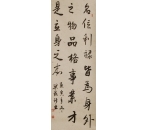 名位利祿皆為身外
之物品格事業才
是立身之志